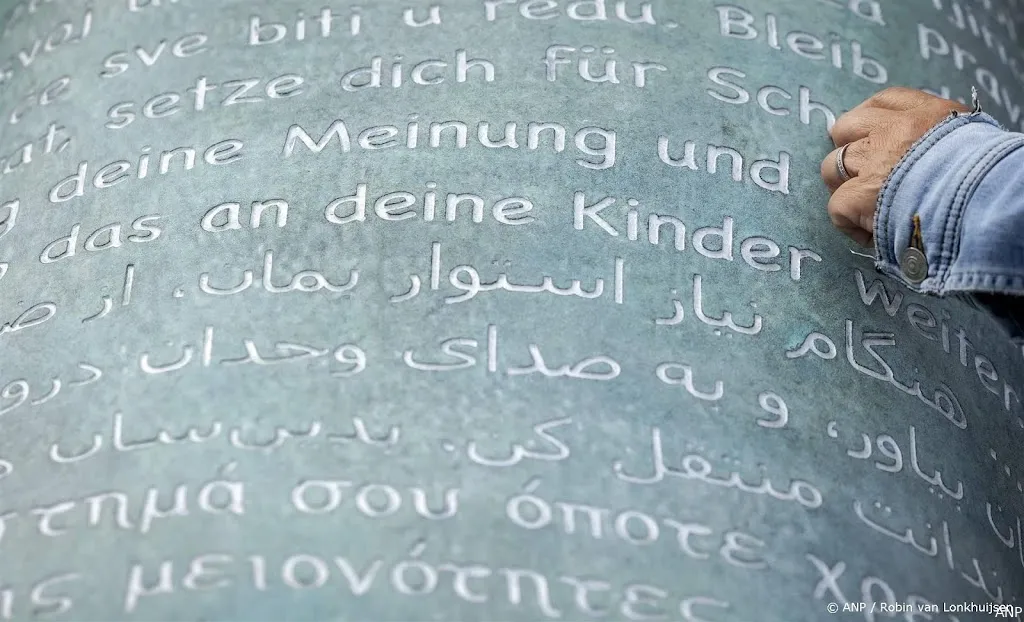 sve biti u redu. Bleib
setze dich für Sch
deine Meinung und
das an deine Kinder weiter
هنگام نیاز استوار بمان. از
بیاور، و به صدای وجدان
منتقل کن. بدین‌سان
στημά σου όποτε
μειονότητες
© ANP / Robin van Lonkhuijsen
ANP